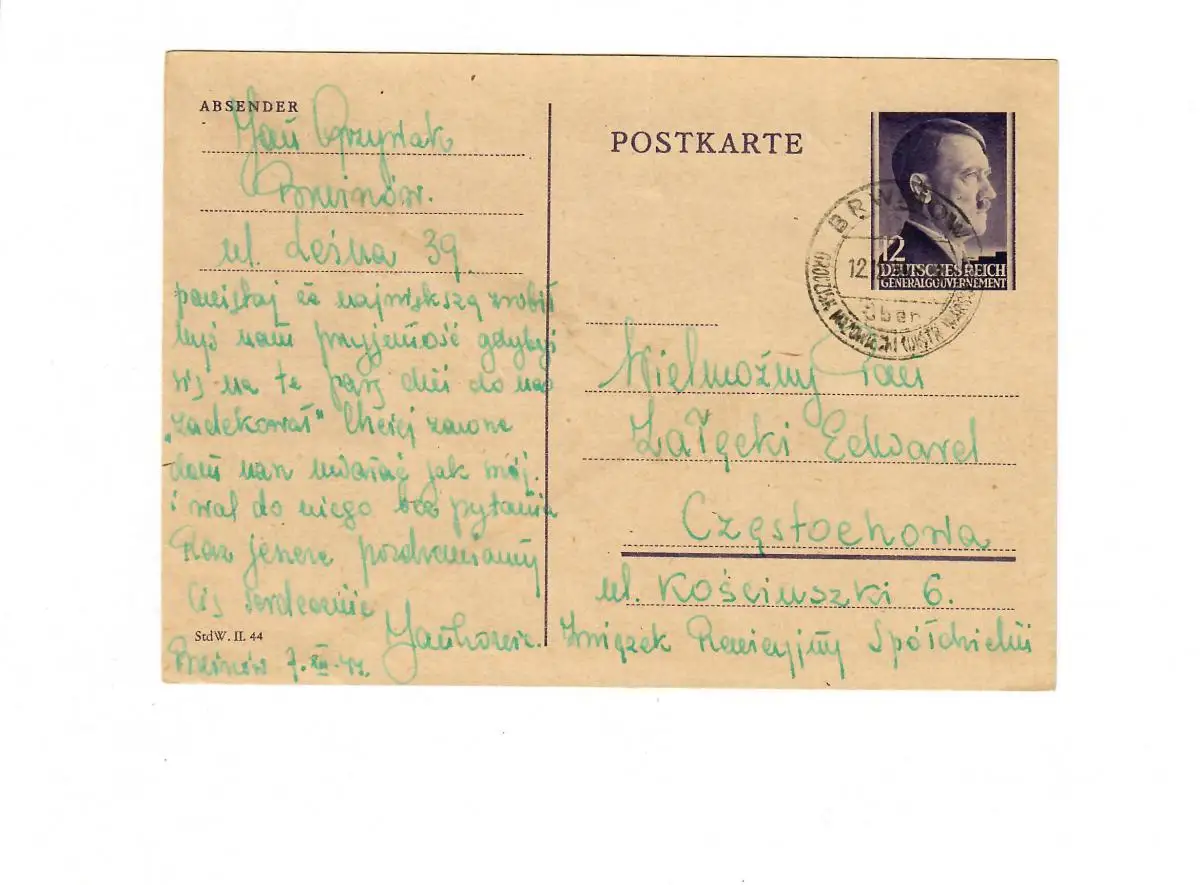 ABSENDER
Jan
Brwinów.
ul. Leśna 39.
pamiętaj że największą zrobił
byś nam przyjemność gdybyś
się na te parę dni do nas
"zadekował"
dom nasz uważać jak swój.
i wal do niego bez pytania
Raz jeszcze pozdrawiamy
Cię serdecznie
StdW. II. 44
Brwinów 7. XII. 44.
POSTKARTE
12
DEUTSCHES REICH
GENERALGOUVERNEMENT
BRWINOW
12.
über
Wielmożny Pan
Załęcki Edward
Częstochowa
ul. Kościuszki 6.
Związek Rewizyjny Spółdzielni